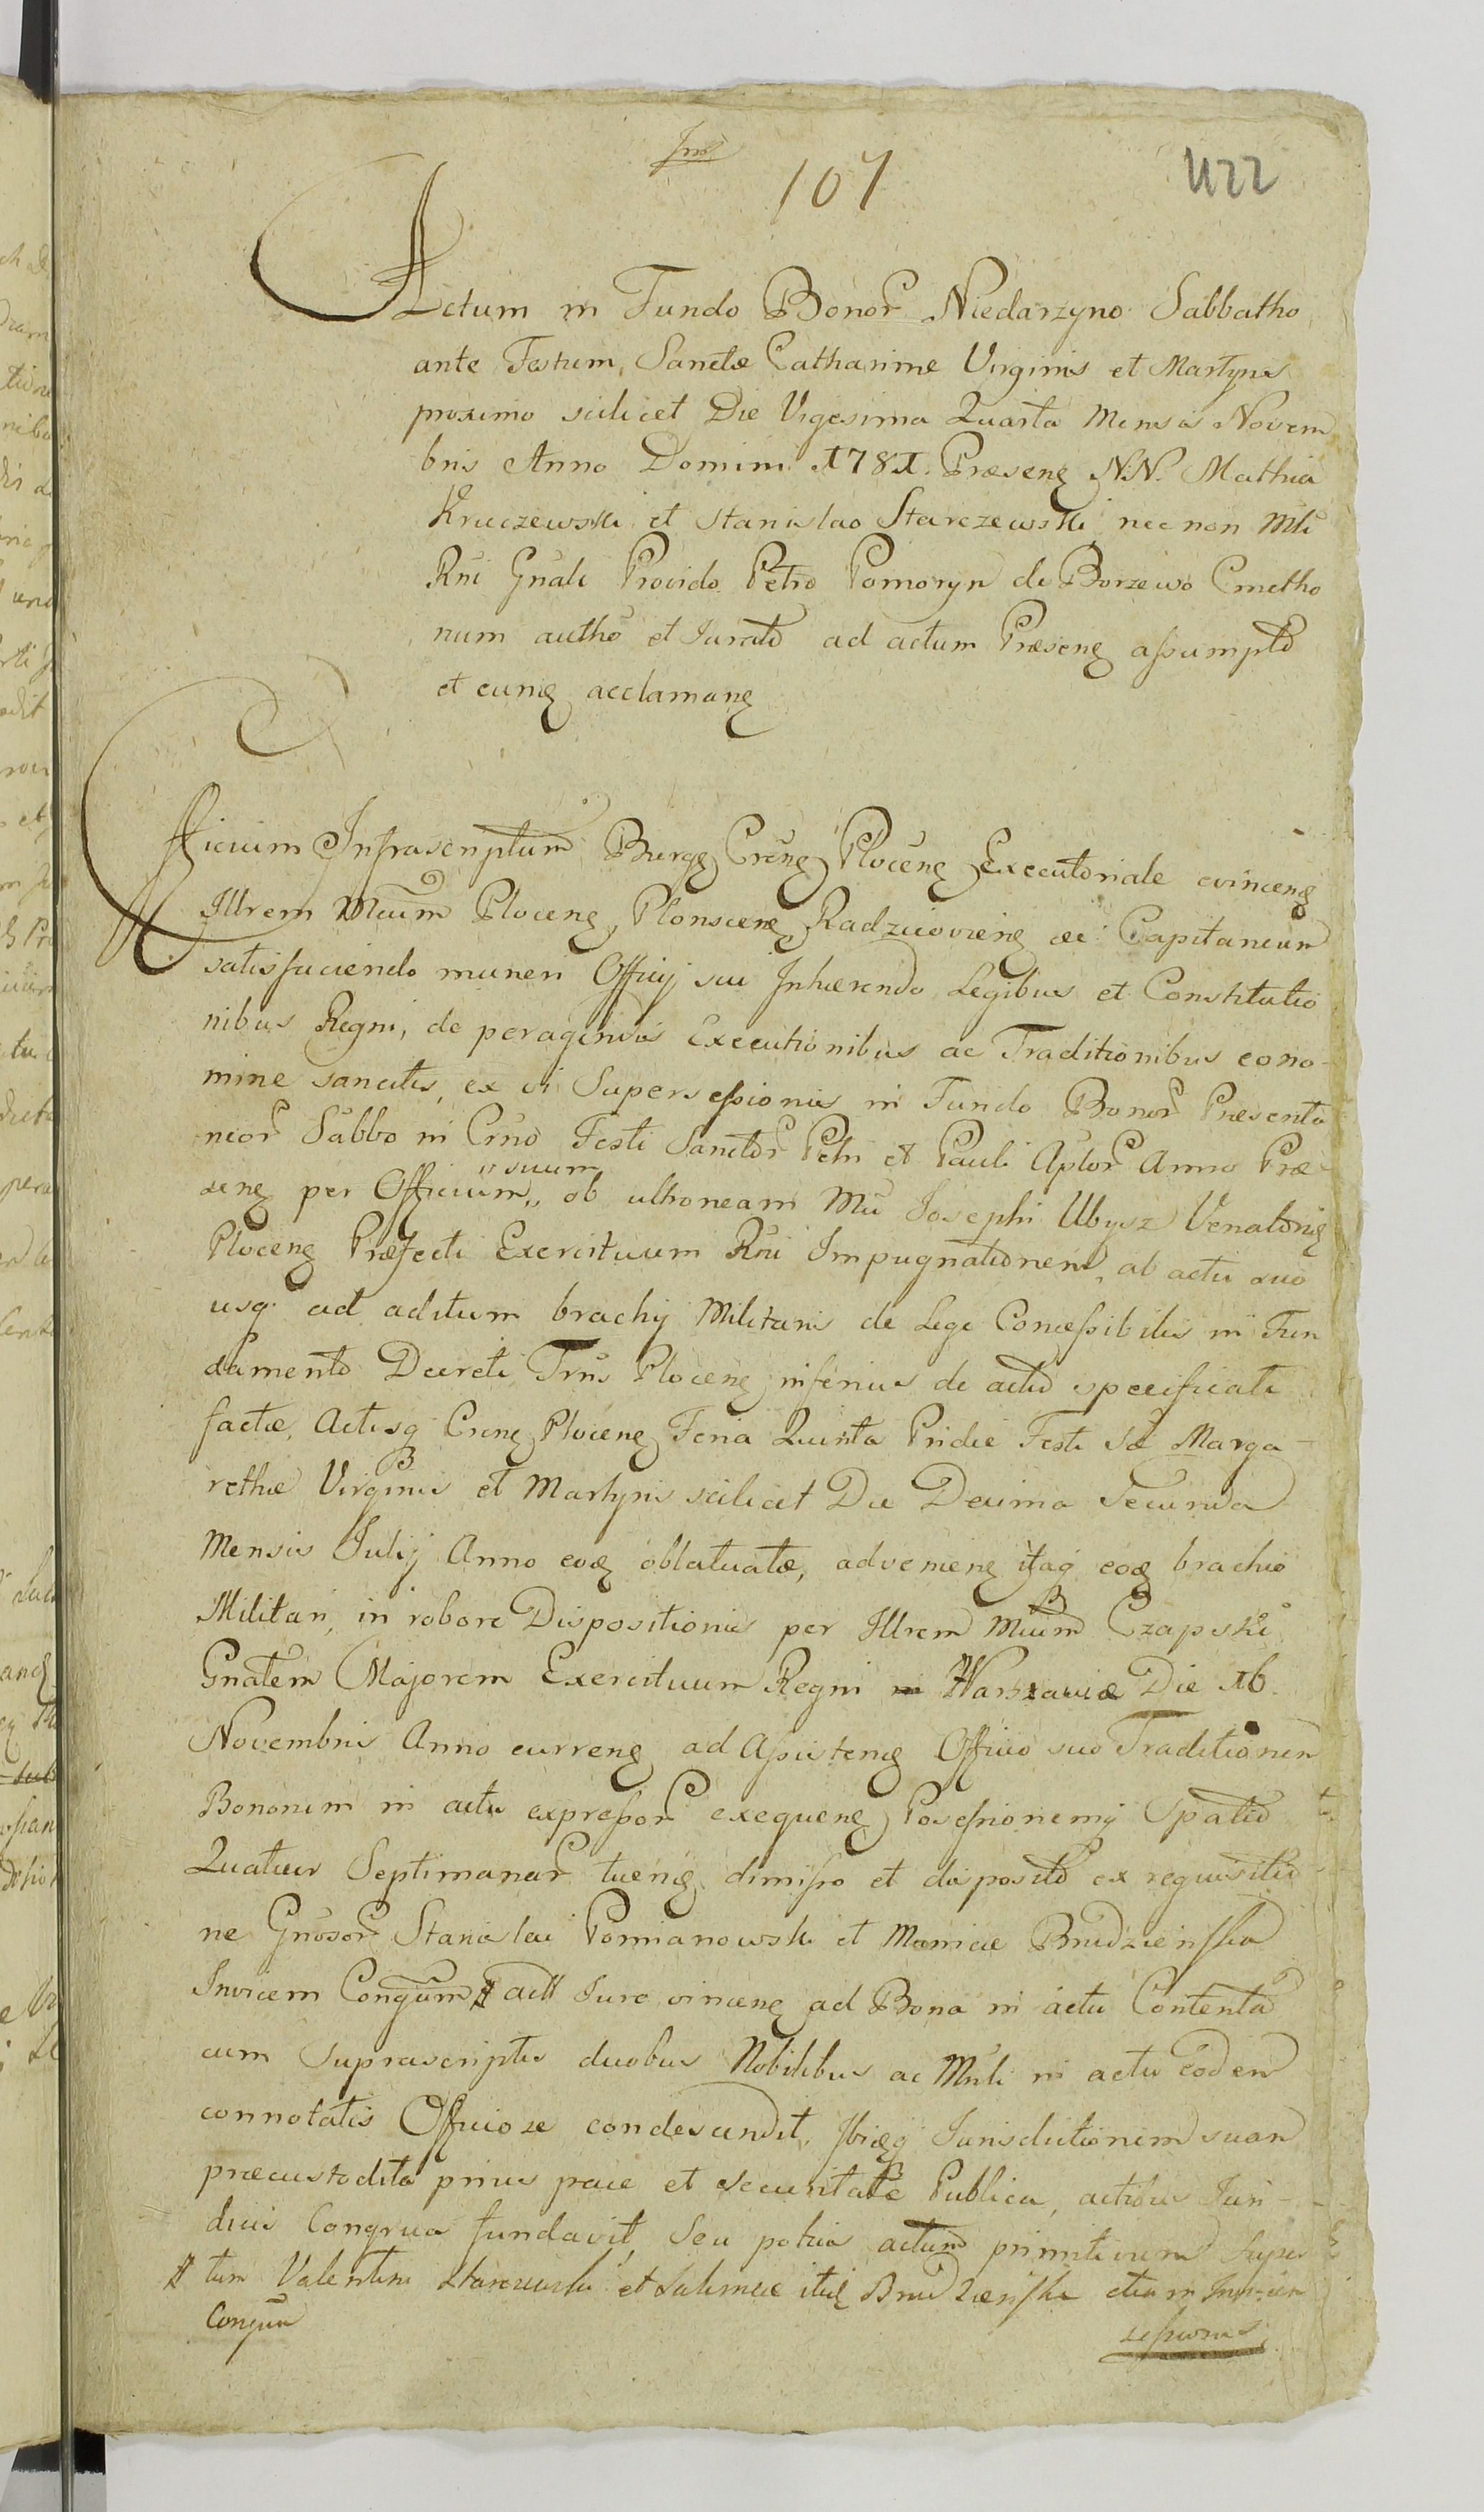 107
422
Actum in Fundo Bonor Niedarzyno Sabbatho
ante Festum Sanctæ Catharinæ Virginis et Martyris
proximo scilicet Die Vigesima Quarta Mensis Novem
bris Anno Domini 1781. Præsenę N:N. Mathia
Kruczewski et Stanislao Starczewski nec non Mli
Rni Gnali Provido Petro Pomoryn de Borzewo Cmetho
num autho et Jurato ad actum Præsenę assumpto
et eumę acclamanę
Officium Infrascriptum Burgę Crenę Plocenę Executoriale evincenę
Illrem Mcum Plocenę, Plonscenę, Radzieiovienę ec Capitaneum
satisfaciendo muneri Officij sui Inhærendo Legibus et Constitutio
nibus Regni, de peragendis Executionibus ac Traditionibus eono-
mine sancitis, ex vi Supersessionis in Fundo Bonor Præsenta
neor Sabbo in Crno Festi Sanctor Petri et Pauli Aplor Anno Præ-
senę per Officium „ suum „ ob ultroneam Mci Josephi Ubysz Venatoris
Plocenę Præfecti Exercituum Rni Impugnationem, ab actu suo
usq ad aditum brachij Militaris de Lege Concessibilis in Fun
damento Decreti Trnis Plocenę inferius de acto specificati
factæ, Actisq Crenę Plocenę Feria Quinta Pridie Festi Sæ Marga-
rethæ Virginis et Martyris scilicet Die Decima Secunda
Mensis Julij Anno eoę oblatuatæ, advenienę itaq eoę brachio
Militari, in robore Dispositionis per Illrem Mcum Czapski
Gnalem Majorem Exercituum Regni Warszawiæ Die 16.
Novembris Anno currenę ad Assistenę Officio suo Traditionem
Bononem in actu expressor exequenę Possessionemq Spatio
Quatuor Septimanar tuenę dimisso et disposito ex requisitio
ne Gnosor Stanislai Pomianowski et Mariæ Brudzieńska
Invicem Congum # actt Jure vincenę ad Bona in actu Contenta
cum suprascriptis duobus Nobilibus ac Mnli in actu eodem
connotatis Officiose condescendit, Ibiqę Jurisdictionem suam
præcustodita prius pace et securitate Publica, actibus Juri-
dicis Congrua fundavit, Seu potius actum primitivum Super
# tum Valentini Starczewski et Salomeæ itię Brudzieńska etiam Invicem
Congum
sessionis